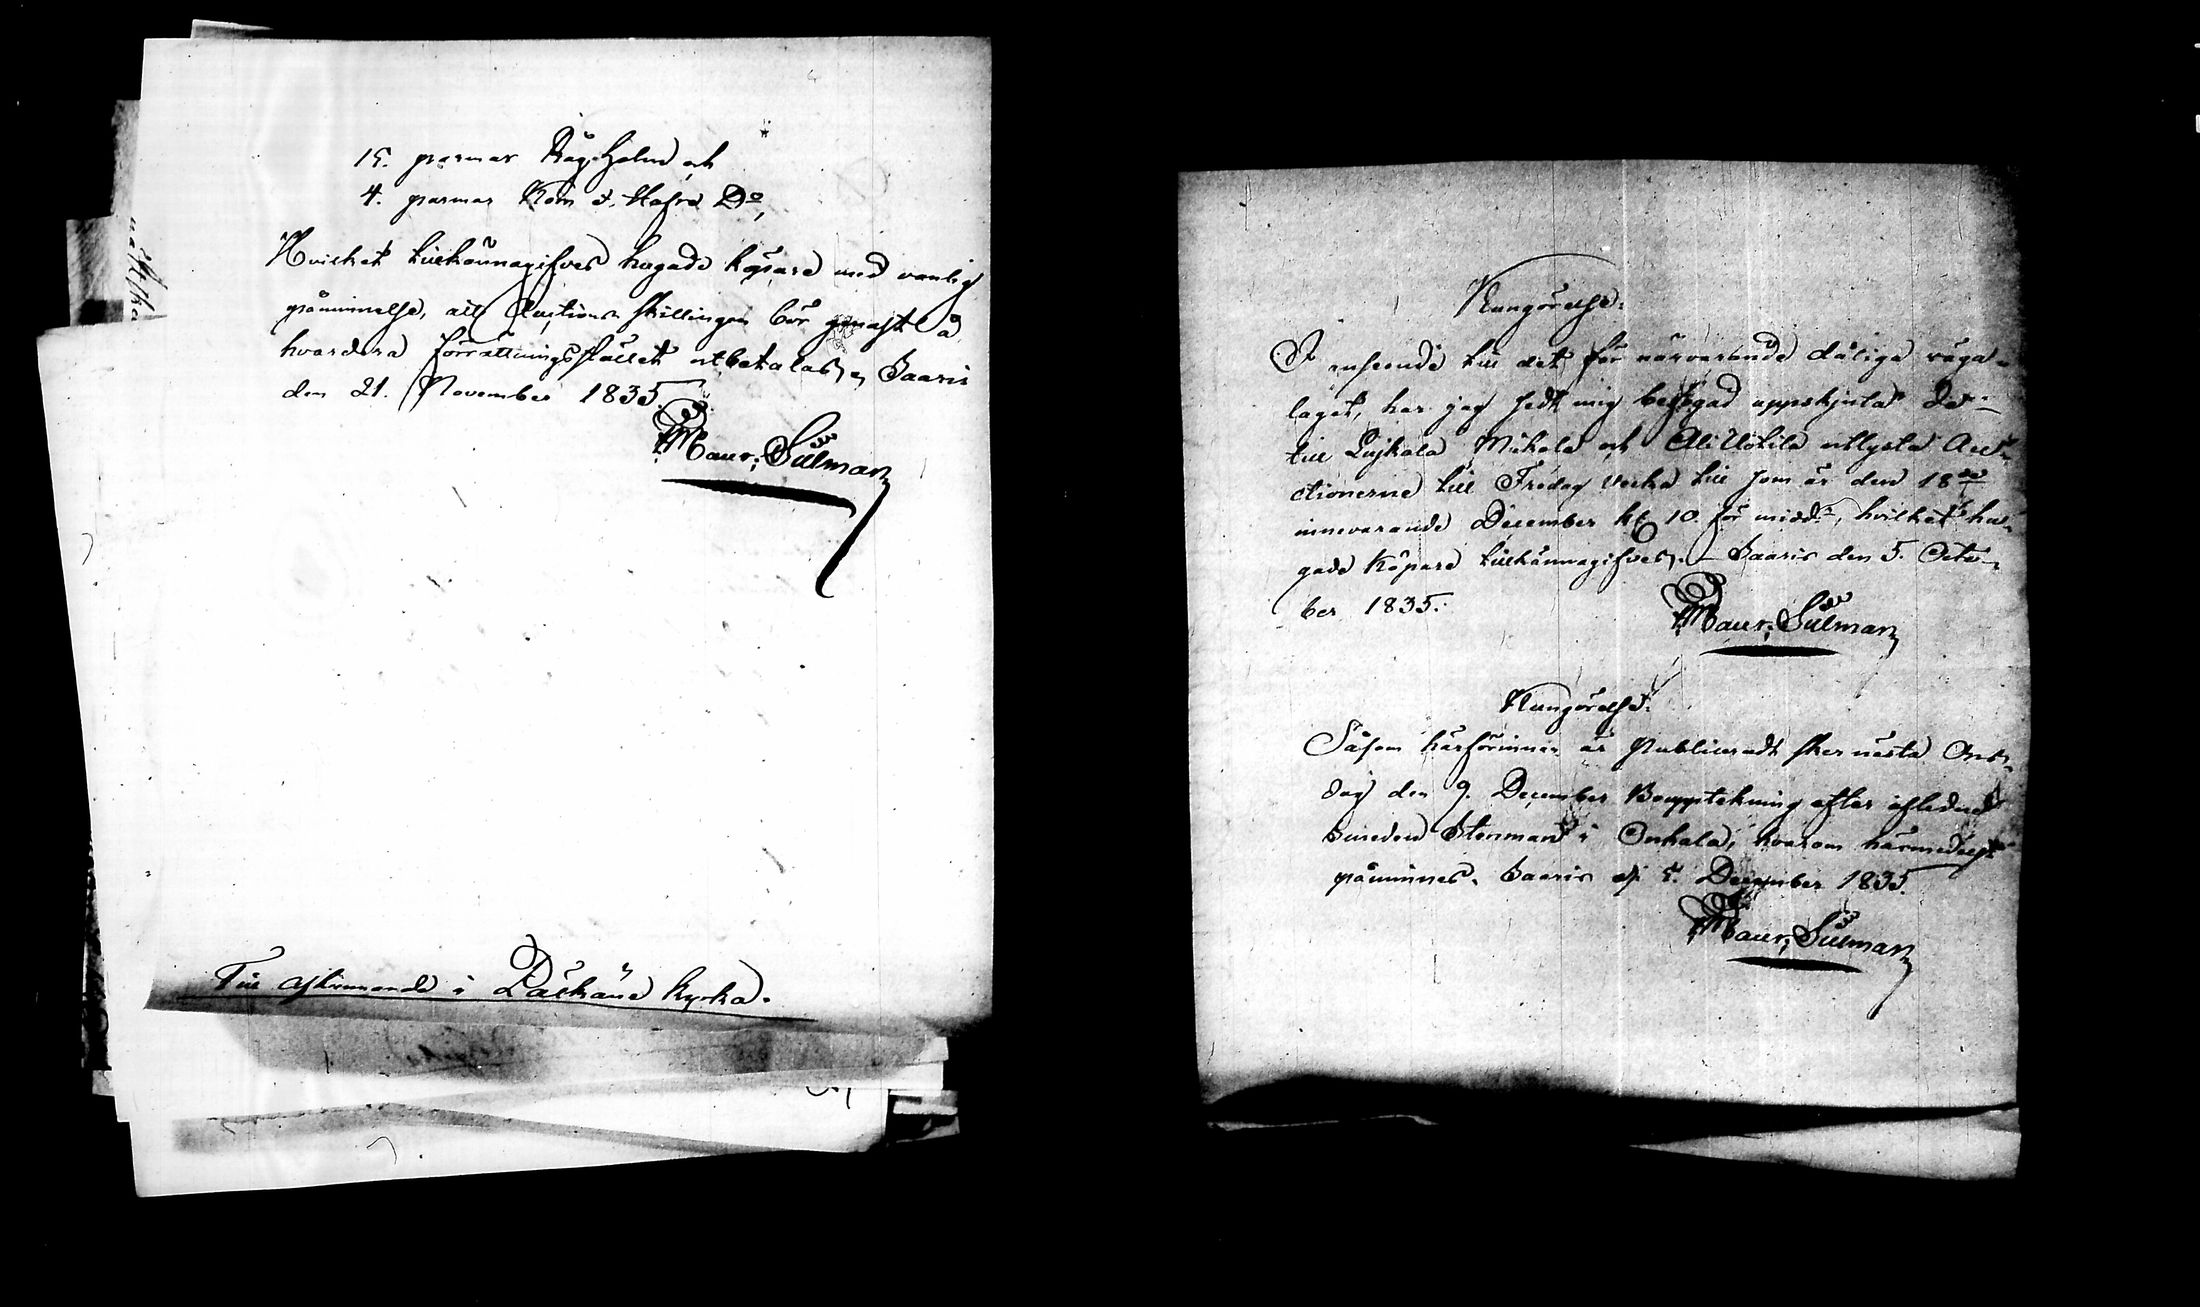 15. parmar Råg-Halm och
4. parmar Korn o. Hafre Do,
Hvilket tillkännagifves hugade köpare med vanlig
påminnelse, att Auctions skillingen bör genast å
hvardera förrättningsstället utbetalas, Saaris
den 21. November 1835.
Maur: Sulman
Till afkunnande i Pälkäne kyrka.
Kungörelse:
I anseende till det för närvarande dåliga väga-
laget, har jag sedt mig befogad uppskjuta de
till Luikala Mikola och Ali Uotila utlysta Auc-
ctionerne till Fredag vecka till som är den 18de
innevarande December kl 10. för midd:, hvilket hu-
gade köpare tillkännagifves. - Saaris den 5. Octo-
ber 1835.
Maur: Sulman
Kungörelse:
Såsom härförinnan är publiceradt sker nästa Ons-
dag den 9. December Bouppteckning efter afledne
Smeden Stenman i Onkala, hvarom härmedelst
påminnes. Saaris d. 5. December 1835.
Maur: Sulman